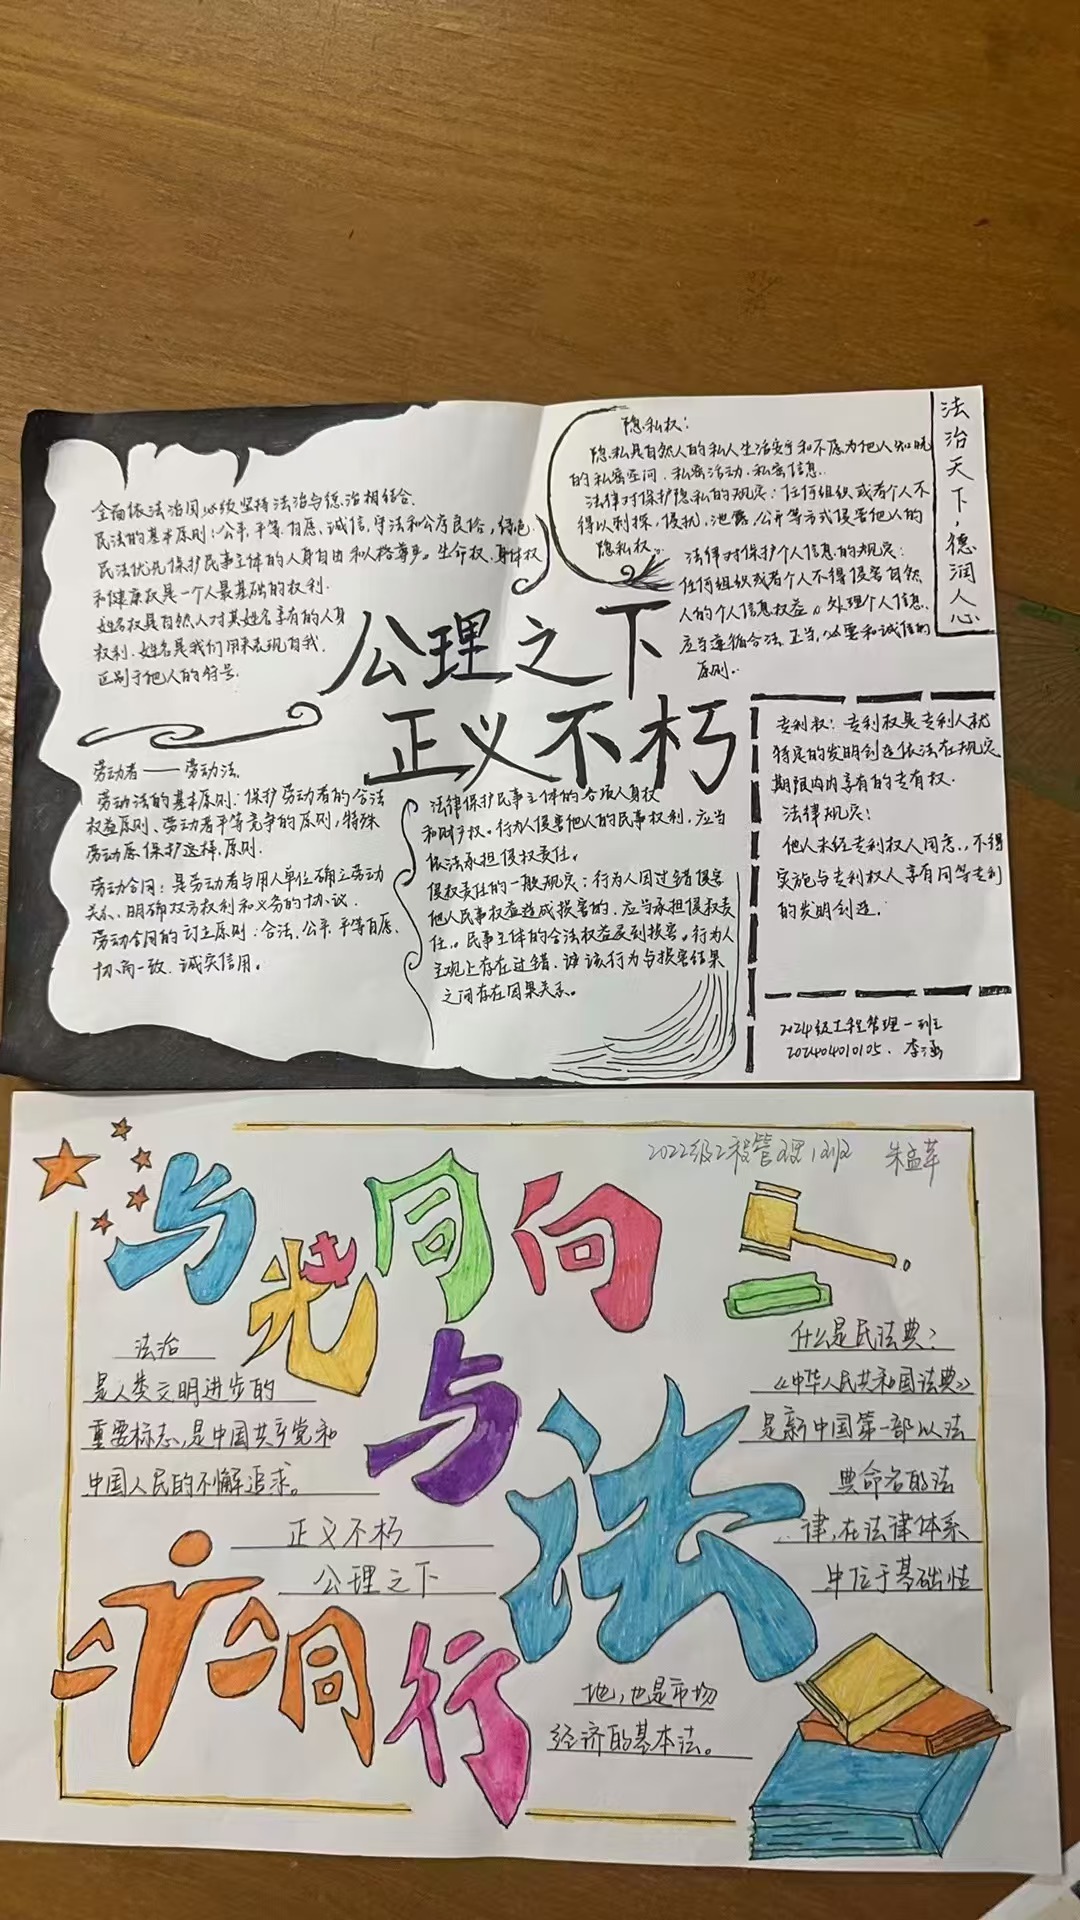 全面依法治国必须坚持法治与德治相结合.
民法的基本原则:公平,平等,自愿,诚信,守法和公序良俗,绿色.
民法优先保护民事主体的人身自由和人格尊严。生命权.身体权
和健康权是一个人最基础的权利.
姓名权是自然人对其姓名享有的人身
权利.姓名是我们用来表现自我.
区别于他人的符号.
隐私权:
隐私是自然人的私人生活安宁和不愿为他人知晓
的私密空间.私密活动.私密信息.
法律对保护隐私的规定:任何组织或者个人不
得以刺探,侵扰,泄露,公开等方式侵害他人的
隐私权。
法律对保护个人信息的规定:
任何组织或者个人不得侵害自然
人的个人信息权益。处理个人信息.
应当遵循合法.正当.必要和诚信的
原则.
法治天下,德润人心
公理之下
正义不朽
劳动者——劳动法.
劳动法的基本原则:保护劳动者的合法
权益原则、劳动者平等竞争的原则,特殊
劳动 保护 原则.
劳动合同:是劳动者与用人单位确立劳动
关系.明确双方权利和义务的协议.
劳动合同的订立原则:合法.公平.平等自愿、
协商一致.诚实信用。
法律保护民事主体的各项人身权
和财产权。行为人侵害他人的民事权利,应当
依法承担侵权责任。
侵权责任的一般规定:行为人因过错侵害
他人民事权益造成损害的.应当承担侵权责
任。民事主体的合法权益受到损害。行为人
主观上存在过错、 该行为与损害结果
之间存在因果关系。
专利权:专利权是专利人就
特定的发明创造依法在规定
期限内内享有的专有权.
法律规定:
他人未经专利权人同意.,不得
实施与专利权人享有同等专利
的发明创造.
2024级工程管理一班
202404010105. 李涵
2022级工程管理1班 朱孟苹
与光同向
与法
同行
法治
是人类文明进步的
重要标志,是中国共产党和
中国人民的不懈追求。
正义不朽
公理之下
什么是民法典?
《中华人民共和国法典》
是新中国第一部以法
典命名的法
律,在法律体系
中位于基础性
地,也是市场
经济的基本法。